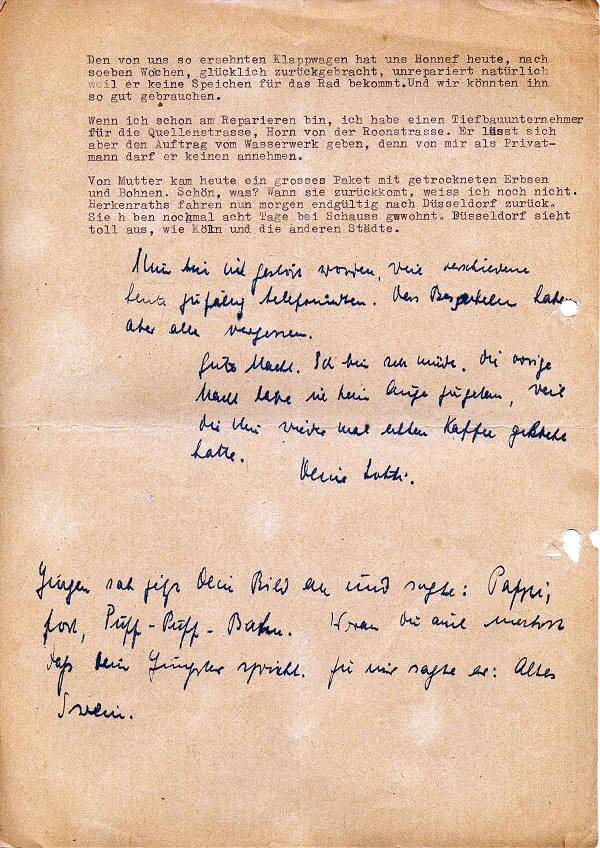 Den von uns so ersehnten Klappwagen hat uns Honnef heute, nach
soeben Wochen, glücklich zurückgebracht, unrepariert natürlich
weil er keine Speichen für das Rad bekommt.Und wir könnten ihn
so gut gebrauchen.
Wenn ich schon am Reparieren bin, ich habe einen Tiefbauunternehmer
für die Quellenstrasse, Horn von der Roonstrasse. Er lässt sich
aber den Auftrag vom Wasserwerk geben, denn von mir als Privat-
mann darf er keinen annehmen.
Von Mutter kam heute ein grosses Paket mit getrockneten Erbsen
und Bohnen. Schön, was? Wann sie zurückkomt, weiss ich noch nicht.
Herkenraths fahren nun morgen endgültig nach Düsseldorf zurück.
Sie h ben nochmal acht Tage bei Schauss gewohnt. Düsseldorf sieht
toll aus, wie Köln und die anderen Städte.
Nun bin ich gestört worden, weil verschiedene
Leute zufällig telefonierten. Das Bespritzeln haben
aber alle vergessen.
Gute Nacht. Ich bin sehr müde. Die vorige
Nacht habe ich kein Auge zugetan, weil
die Uhi wieder mal echten Kaffee gekocht
hatte.
Deine Lotti.
Jürgen sah jetzt Dein Bild an und sagte: Pappi,
fort, Puff-Puff-Bahn. Woran Du auch merkst
daß Dein Jüngster spricht. Zu mir sagte er: Altes
Swein.